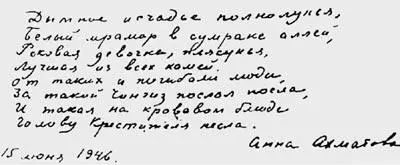 Дымное исчадье полнолунья,
Белый мрамор в сумраке аллей,
Роковая девочка, плясунья,
Лучшая из всех камей.
От таких и погибали люди,
За такой Чингиз послал посла,
И такая на кровавом блюде
Голову Крестителя несла.
Анна Ахматова
15 июня 1946.